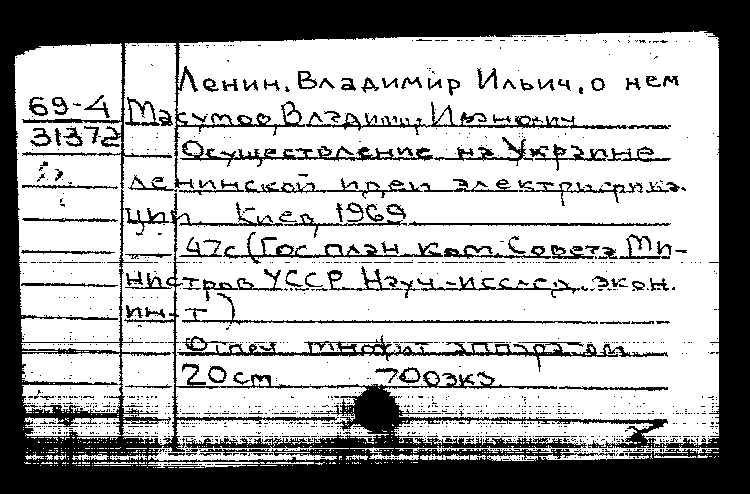 Ленин, Владимир Ильич, о нем
69-4
31372
Масумов, Владимир Иванович
Осуществление на Украине
ленинской идеи электрифика-
ции. Киев, 1969.
47с (Гос план. ком. Совета Ми-
нистров УССР. Науч-исслед. экон.
ин-т)
Отпеч аппаратом
20см 700экз